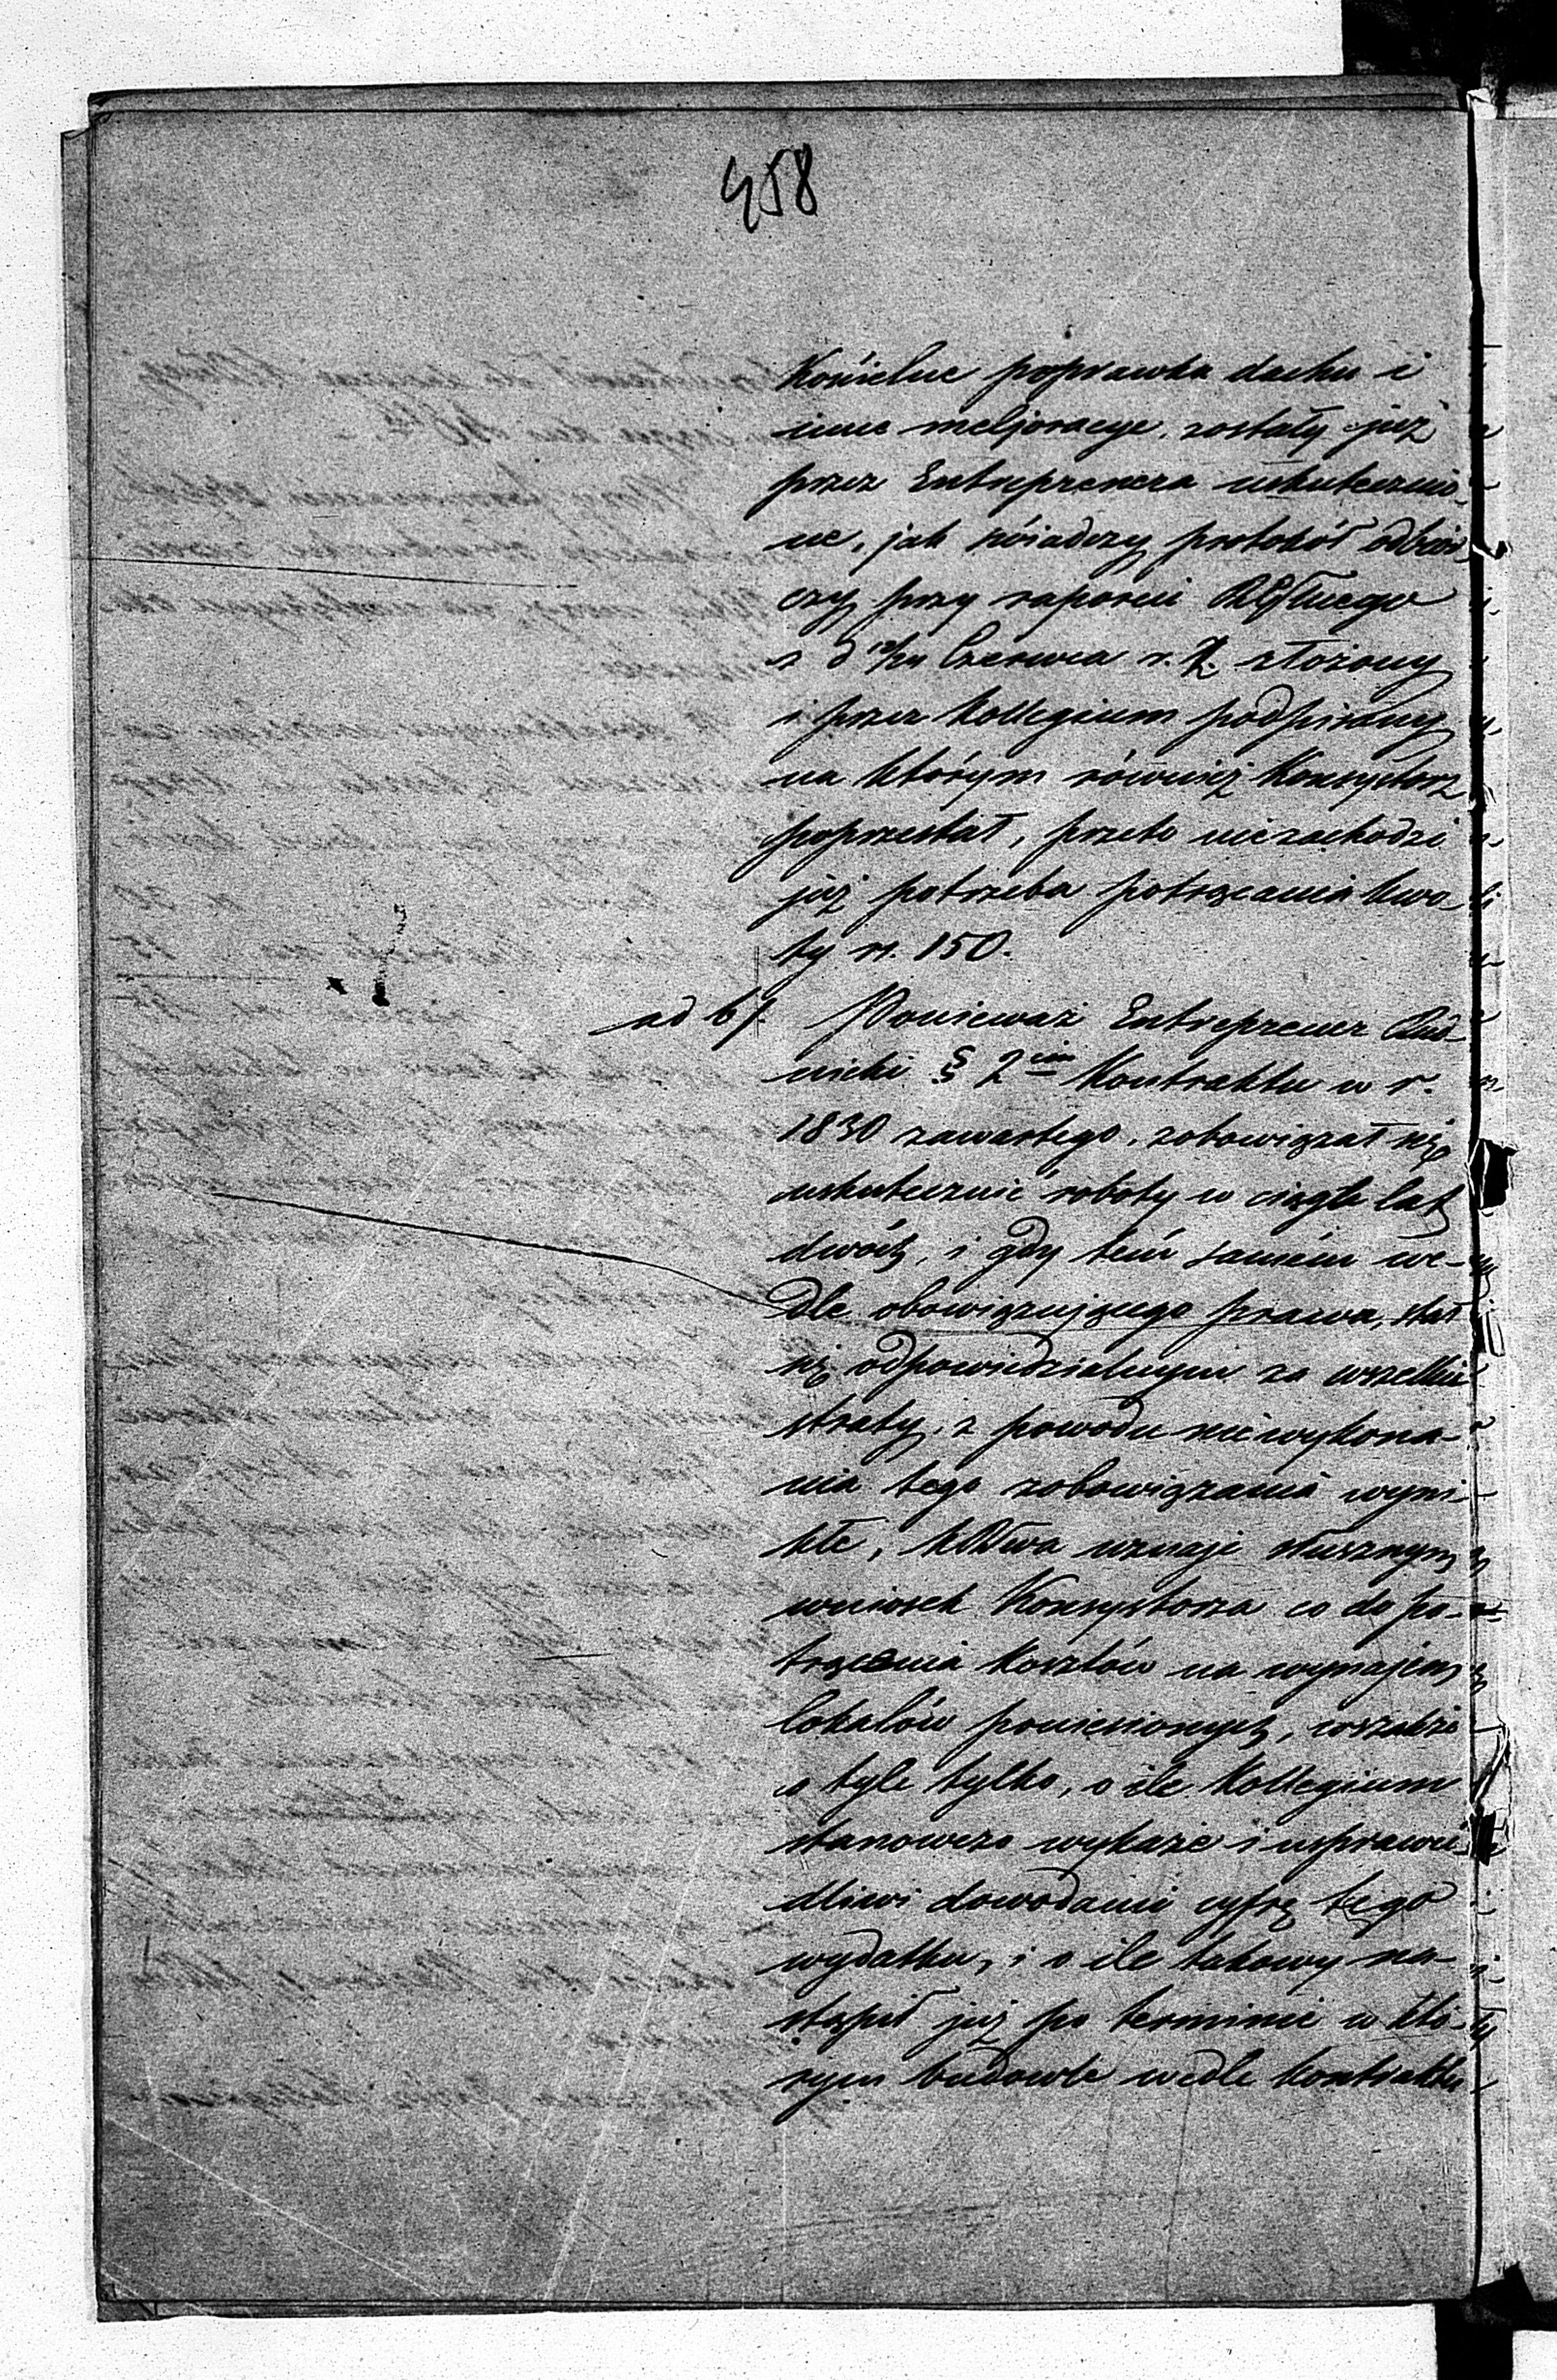 458
Kościelne poprawka dachu i
inne meljoracye, zostały już
przez Entreprenera uskutecznio-
ne, jak świadczy protokół odbior
czy przy raporcie
z d 12/24 Czerwca r. z. złożony
i przez Kollegium podpisany
na którym również Konsystorz
poprzestał, przeto niezachodzi
już potrzeba potrącania kwo-
ty rs. 150.
ad b/ Ponieważ Entreprener Rud-
nicki § 2im Kontraktu w r.
1830 zawartego, zobowiązał się
uskutecznić roboty w ciągu lat
dwóch, i gdy tém samém we-
dle obowiązującego prawa, stał
się odpowiedzialnym za wszelkie
straty, z powodu niewykona-
nia tego zobowiązania wyni-
kłe, uznaje słusznym
wniosek Konsystorza co do po-
trącenia kosztów na wynajem
lokalów poniesionych, wszakże
o tyle tylko, o ile Kollegium
stanowczo wykaże i usprawie-
dliwi dowodami cyfrę tego
wydatku, i o ile takowy na-
stąpił już po terminie w któ-
rym budowle wedle kontraktu